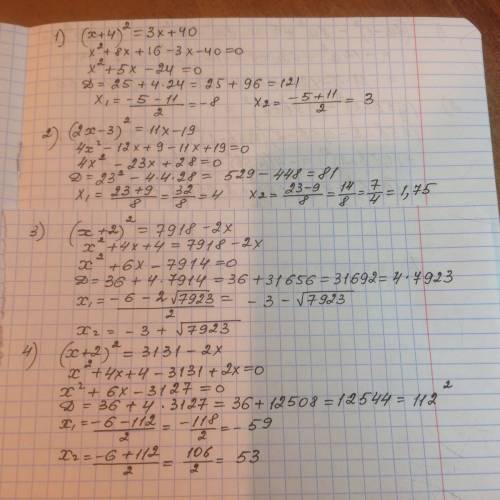 1) (x+4)² = 3x+40
x²+8x+16-3x-40=0
x²+5x-24=0
D = 25+4·24 = 25+96=121
x₁ = (-5-11)/2 = -8 x₂ = (-5+11)/2 = 3
2) (2x-3)² = 11x-19
4x²-12x+9-11x+19=0
4x²-23x+28=0
D=23²-4·4·28= 529-448=81
x₁ = (23+9)/8 = 32/8 = 4 x₂ = (23-9)/8 = 14/8 = 7/4 = 1,75
3) (x+2)² = 7918-2x
x²+4x+4=7918-2x
x²+6x-7914=0
D=36+4·7914=36+31656=31692=4·7923
x₁ = (-6-2√7923)/2 = -3-√7923
x₂ = -3+√7923
4) (x+2)² = 3131-2x
x²+4x+4-3131+2x=0
x²+6x-3127=0
D=36+4·3127=36+12508=12544=112²
x₁ = (-6-112)/2 = -118/2 = -59
x₂ = (-6+112)/2 = 106/2 = 53